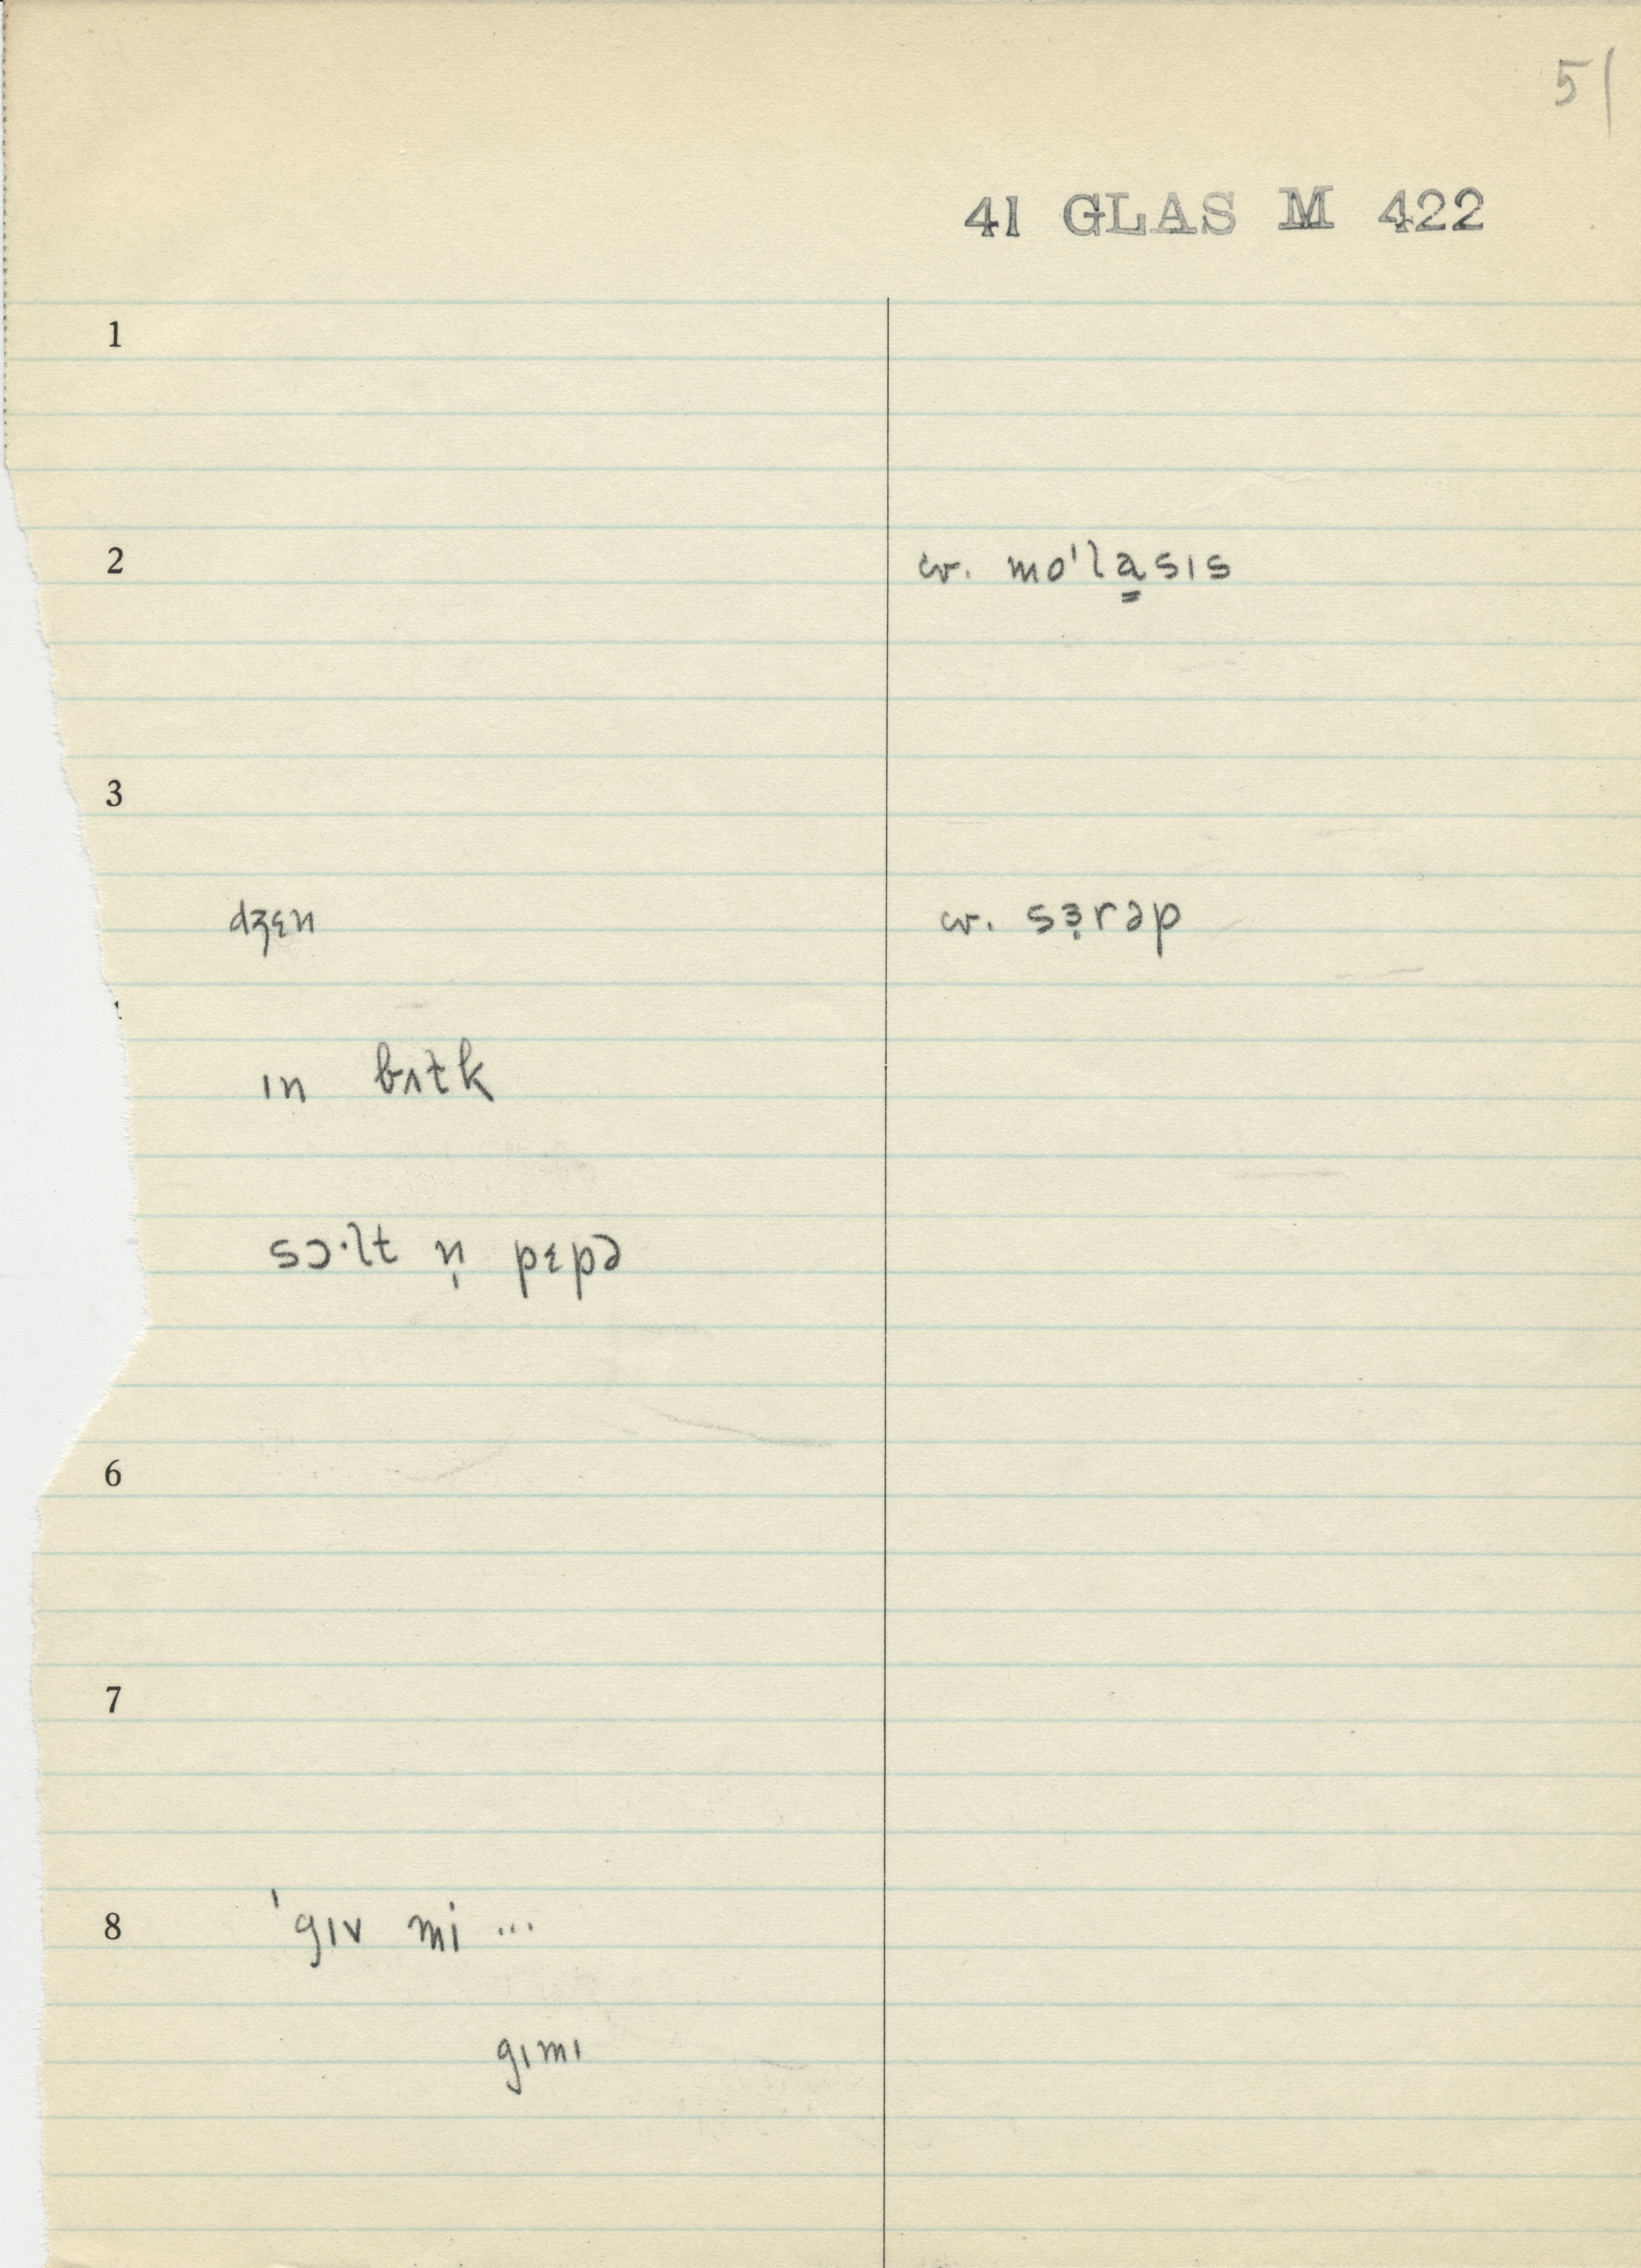 51
41 GLAS M 422
1
2 cv. mo'la̳sɪs
3
dʒɛn cv. sɜ̣rəp
ɪn bʌɫk
sɔ·lt n̩ pɛpə
6
7
8 ˈgɪv mi ...
gɪmɪ